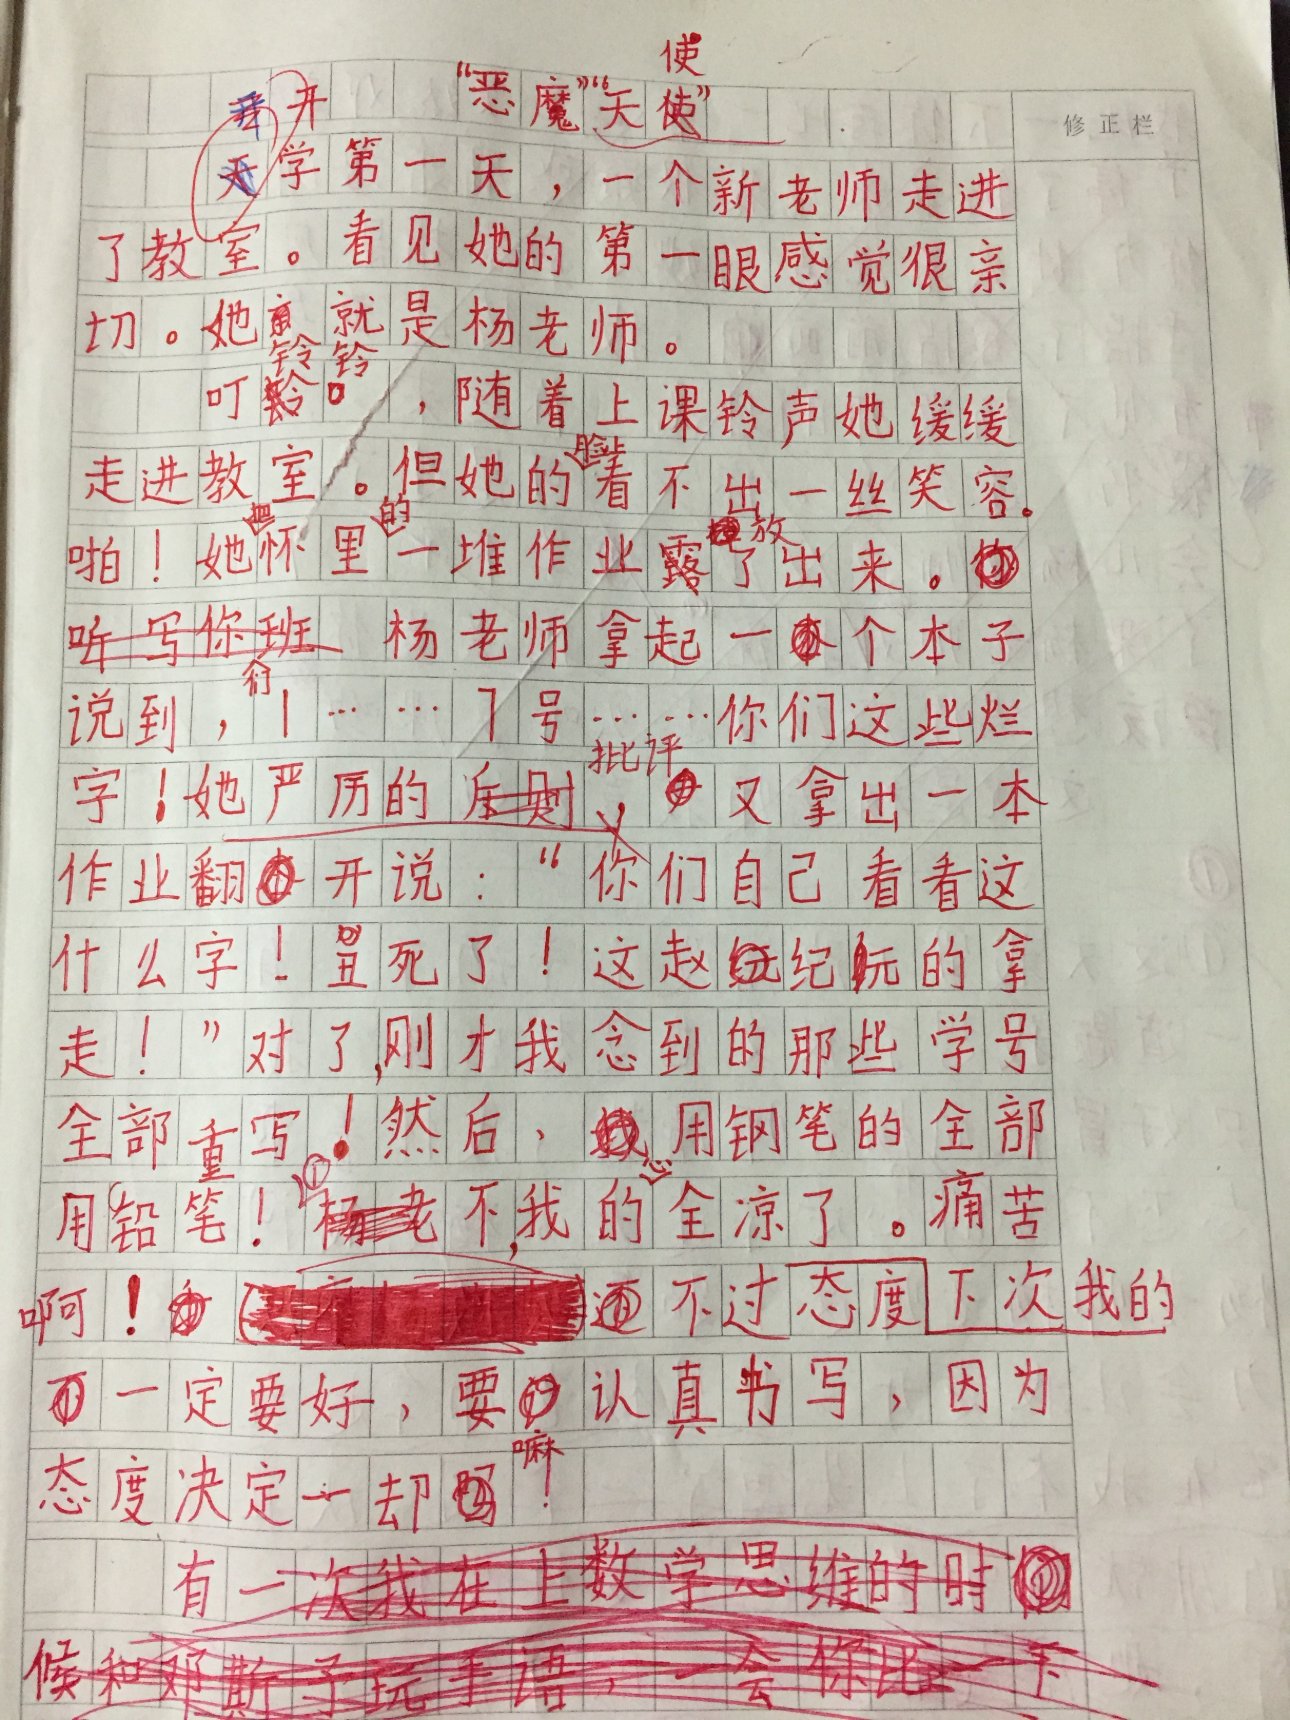 使
开 “恶魔”“天使” 修正栏
学第一天，一个新老师走进
了教室。看见她的第一眼感觉很亲
切。她就是杨老师。
铃铃
叮铃。，随着上课铃声她缓缓
脸上
走进教室。但她的看不出一丝笑容。
把 的 放
啪！她怀里一堆作业露了出来。
听写你班 杨老师拿起一个本子
们
说到，1……7号……你们这些烂
批评
字！她严厉的斥则 又拿出一本
作业翻开说：“你们自己看看这
什么字！丑死了！这赵纪玩的拿
走！”对了，刚才我念到的那些学号
全部重写！然后、用钢笔的全部
① 心
用铅笔！杨老不，我的全凉了。痛苦
啊！不过态度下次我的
一定要好，要认真书写，因为
嘛
态度决定一却！
有一次我在上数学思维的时
候和邓斯予玩手语，一会你比一下